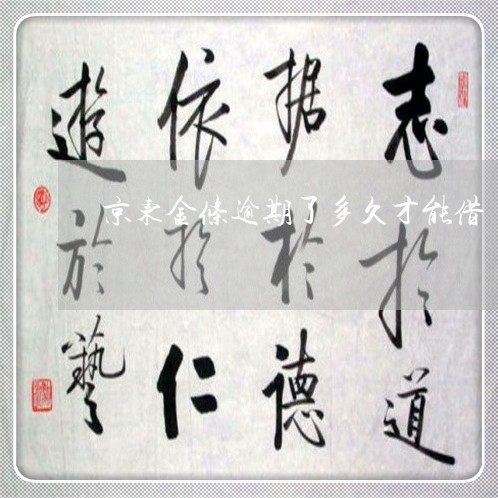 志於道
据於德
依於仁
遊於藝
京東金條逾期了多久才能借